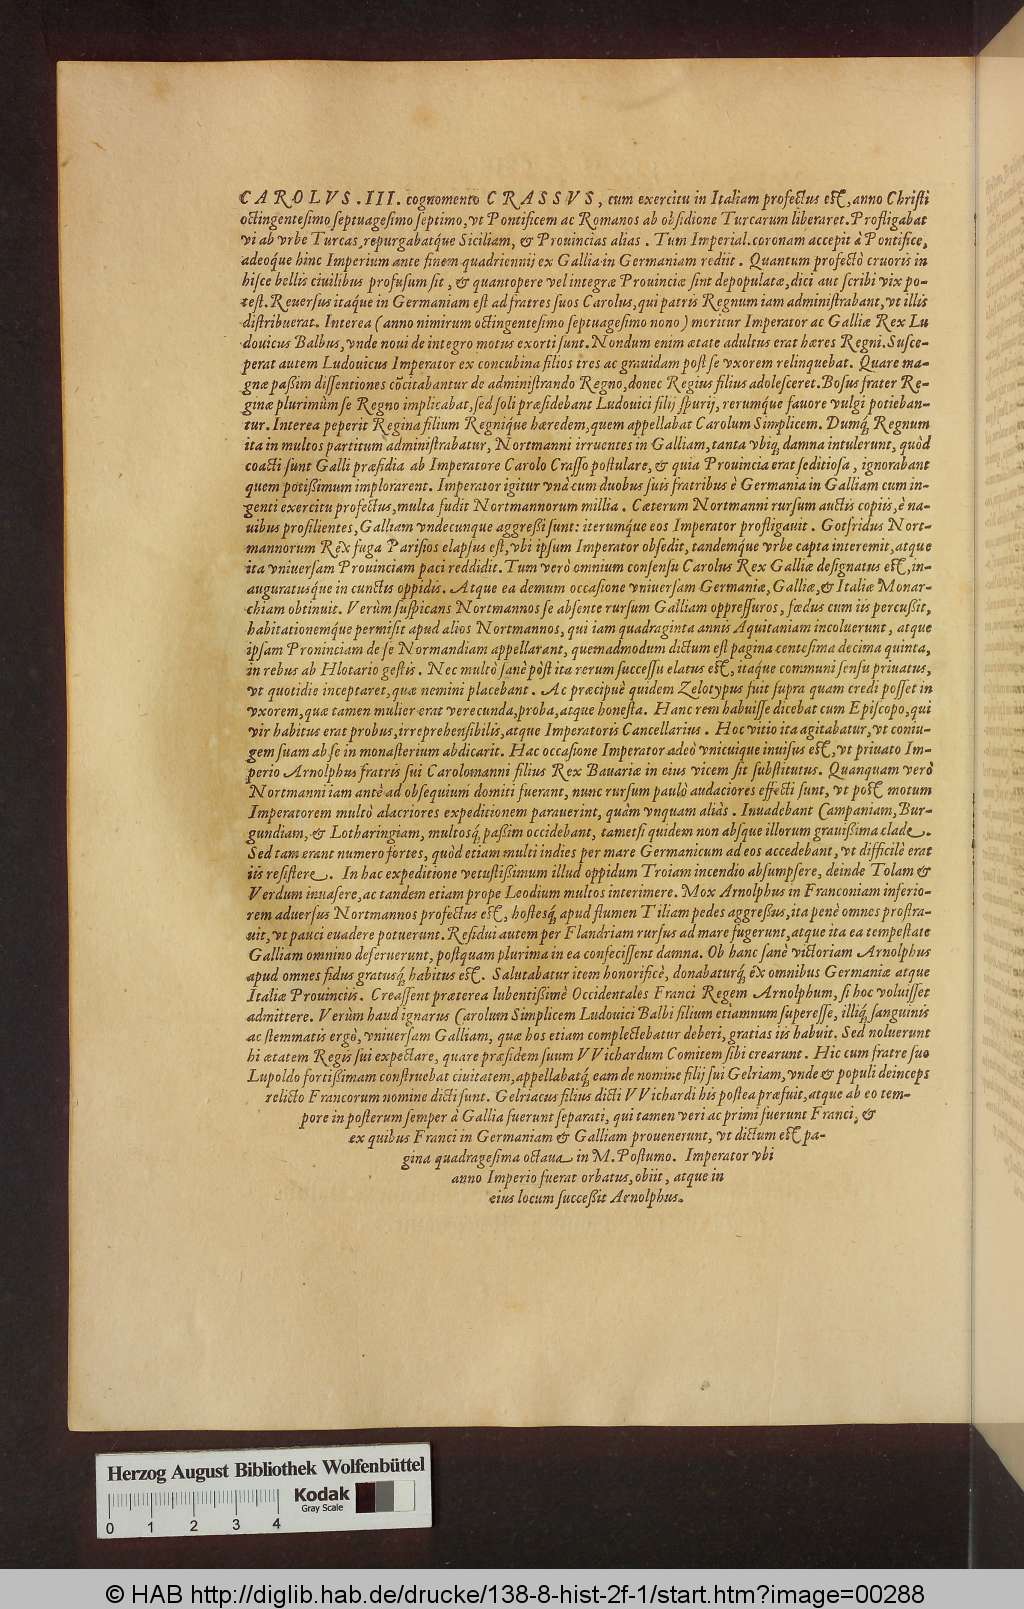 CAROLVS. III. cognomento CRASSVS, cum exercitu in Italiam profectus est, anno Christi
octingentesimo septuagesimo septimo, vt Pontificem ac Romanos ab obsidione Turcarum liberaret. Profligabat
vi ab vrbe Turcas, repurgabatq́ue Siciliam, & Prouincias alias. Tum Imperial. coronam accepit à Pontifice,
adeoq́ue hinc Imperium ante finem quadriennij ex Gallia in Germaniam rediit. Quantum profectò cruoris in
hisce bellis ciuilibus profusum sit, & quantopere vel integræ Prouinciæ sint depopulatæ, dici aut scribi vix po-
test. Reuersus itaq́ue in Germaniam est ad fratres suos Carolus, qui patris Regnum iam administrabant, vt illis
distribuerat. Interea (anno nimirum octingentesimo septuagesimo nono) moritur Imperator ac Galliæ Rex Lu
douicus Balbus, vnde noui de integro motus exorti sunt. Nondum enim ætate adultus erat hæres Regni. Susce-
perat autem Ludouicus Imperator ex concubina filios tres ac grauidam post se vxorem relinquebat. Quare ma-
gnæ paßim dissentiones cōcitabantur de administrando Regno, donec Regius filius adolesceret. Bosus frater Re-
ginæ plurimùm se Regno implicabat, sed soli præsidebant Ludouici filij spurij, rerumq́ue fauore vulgi potieban-
tur. Interea peperit Regina filium Regniq́ue hæredem, quem appellabat Carolum Simplicem. Dumq́; Regnum
ita in multos partitum administrabatur, Nortmanni irruentes in Galliam, tanta vbiq; damna intulerunt, quòd
coacti sunt Galli præsidia ab Imperatore Carolo Crasso postulare, & quia Prouincia erat seditiosa, ignorabant
quem potißimum implorarent. Imperator igitur vnà cum duobus suis fratribus è Germania in Galliam cum in-
genti exercitu profectus, multa fudit Nortmannorum millia. Cæterum Nortmanni rursum auctis copiis, è na-
uibus prosilientes, Galliam vndecunque aggreßi sunt: iterumq́ue eos Imperator profligauit. Gotfridus Nort-
mannorum Rex fuga Parisios elapsus est, vbi ipsum Imperator obsedit, tandemq́ue vrbe capta interemit, atque
ita vniuersam Prouinciam paci reddidit. Tum verò omnium consensu Carolus Rex Galliæ designatus est, in-
auguratusq́ue in cunctis oppidis. Atque ea demum occasione vniuersam Germaniæ, Galliæ, & Italiæ Monar-
chiam obtinuit. Verùm suspicans Nortmannos se absente rursum Galliam oppressuros, fœdus cum iis percußit,
habitationemq́ue permisit apud alios Nortmannos, qui iam quadraginta annis Aquitaniam incoluerunt, atque
ipsam Prouinciam de se Normandiam appellarant, quemadmodum dictum est pagina centesima decima quinta,
in rebus ab Hlotario gestis. Nec multò sanè pòst ita rerum successu elatus est, itaque communi sensu priuatus,
vt quotidie inceptaret, quæ nemini placebant. Ac præcipuè quidem Zelotypus fuit supra quam credi posset in
vxorem, quæ tamen mulier erat verecunda, proba, atque honesta. Hanc rem habuisse dicebat cum Episcopo, qui
vir habitus erat probus, irreprehensibilis, atque Imperatoris Cancellarius. Hoc vitio ita agitabatur, vt coniu-
gem suam ab se in monasterium abdicarit. Hac occasione Imperator adeò vnicuique inuisus est, vt priuato Im-
perio Arnolphus fratris sui Carolomanni filius Rex Bauariæ in eius vicem sit substitutus. Quanquam verò
Nortmanni iam antè ad obsequium domiti fuerant, nunc rursum paulò audaciores effecti sunt, vt post motum
Imperatorem multò alacriores expeditionem parauerint, quàm vnquam aliàs. Inuadebant Campaniam, Bur-
gundiam, & Lotharingiam, multosq́; paßim occidebant, tametsi quidem non absque illorum grauißima clade.
Sed tam erant numero fortes, quòd etiam multi indies per mare Germanicum ad eos accedebant, vt difficilè erat
iis resistere. In hac expeditione vetustißimum illud oppidum Troiam incendio absumpsere, deinde Tolam &
Verdum inuasere, ac tandem etiam prope Leodium multos interimere. Mox Arnolphus in Franconiam inferio-
rem aduersus Nortmannos profectus est, hostesq́; apud flumen Tiliam pedes aggreßus, ita penè omnes prostra-
uit, vt pauci euadere potuerunt. Residui autem per Flandriam rursus ad mare fugerunt, atque ita ea tempestate
Galliam omnino deseruerunt, postquam plurima in ea confecissent damna. Ob hanc sanè victoriam Arnolphus
apud omnes fidus gratusq́; habitus est. Salutabatur item honorificè, donabaturq́; ex omnibus Germaniæ atque
Italiæ Prouinciis. Creassent præterea lubentißimè Occidentales Franci Regem Arnolphum, si hoc voluisset
admittere. Verùm haud ignarus Carolum Simplicem Ludouici Balbi filium etiamnum superesse, illiq́; sanguinis
ac stemmatis ergò, vniuersam Galliam, quæ hos etiam complectebatur deberi, gratias iis habuit. Sed noluerunt
hi ætatem Regis sui expectare, quare præsidem suum VVichardum Comitem sibi crearunt. Hic cum fratre suo
Lupoldo fortißimam construebat ciuitatem, appellabatq́; eam de nomine filij sui Gelriam, vnde & populi deinceps
relicto Francorum nomine dicti sunt. Gelriacus filius dicti VVichardi his postea præfuit, atque ab eo tem-
pore in posterum semper à Gallia fuerunt separati, qui tamen veri ac primi fuerunt Franci, &
ex quibus Franci in Germaniam & Galliam prouenerunt, vt dictum est pa-
gina quadragesima octaua in M. Postumo. Imperator vbi
anno Imperio fuerat orbatus, obiit, atque in
eius locum succeßit Arnolphus.
Herzog August Bibliothek Wolfenbüttel
Kodak
Gray Scale
0 1 2 3 4
© HAB http://diglib.hab.de/drucke/138-8-hist-2f-1/start.htm?image=00288